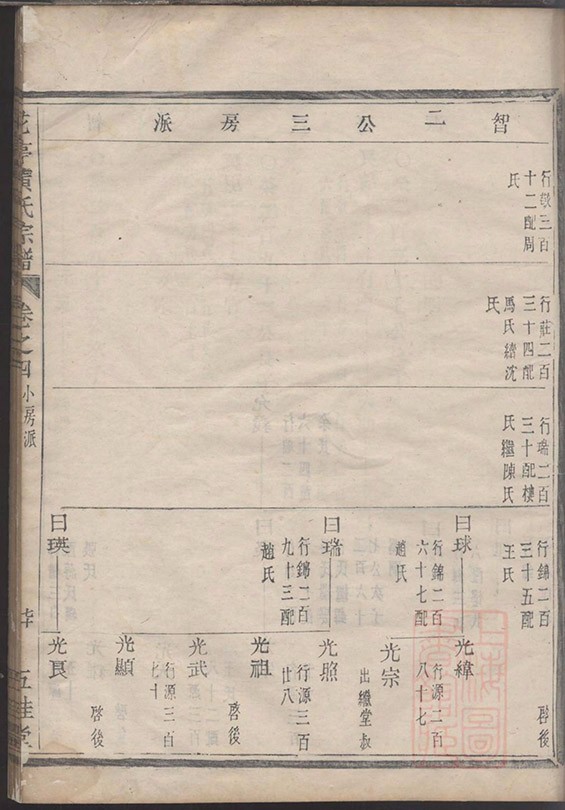 智二公三房派
行敬三百
十二配周
氏
行莊二百
三十四配
馬氏續沈
氏
行瑞二百
三十配樓
氏繼陳氏
行錦二百
三十五配
王氏
啓後
曰球
行錦二百
六十七配
趙氏
光緯
行源二百
八十七
光宗
出繼堂叔
曰瑞
行錦二百
九十三配
趙氏
光照
行源三百
廿八
光祖
啓後
光武
行源三百
七十
光顯
啓後
曰瑛
光良
氏宗譜
卷之四
小房派
五桂堂